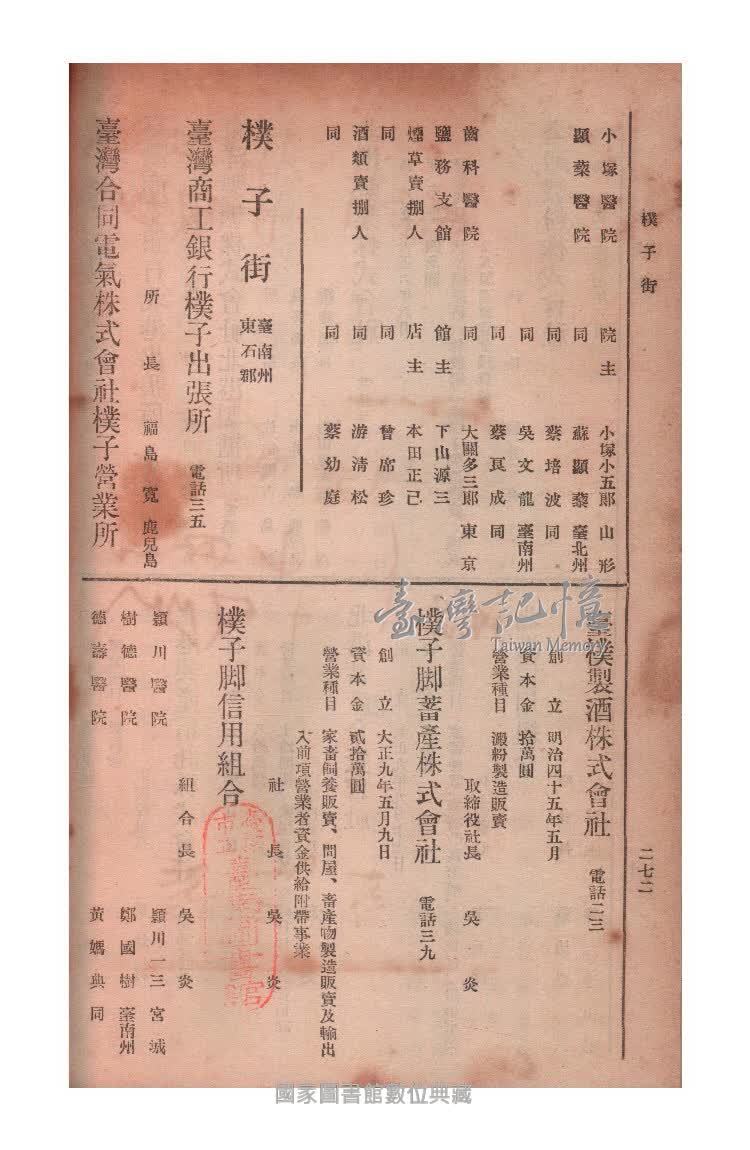 樸子街
二七二
小塚醫院 院主 小塚小五郎 山形
顯蔾醫院 同 蘇顯蔾 臺北州
同 蔡培波 同
同 吳文龍 臺南州
同 蔡頁成 同
齒科醫院 同 大關多三郎 東京
鹽務支館 館主 下山源三
煙草賣捌人 店主 本田正己
同 同 曾席珍
酒類賣捌人 同 游清松
同 同 蔡幼庭
樸子街 臺南州東石郡
臺灣商工銀行樸子出張所 電話三五
所長 福島寬 鹿兒島
臺灣合同電氣株式會社樸子營業所
臺樸製酒株式會社 電話二三
創立 明治四十五年五月
資本金 拾萬圓
營業種目 澱粉製造販賣
取締役社長 吳炎
樸子脚蓄產株式會社 電話三九
創立 大正九年五月九日
資本金 貳拾萬圓
營業種目 家畜飼養販賣、問屋、畜產物製造販賣及輸出
入前項營業者資金供給附帶事業
社長 吳炎
樸子脚信用組合
組合長 吳炎
潁川醫院 潁川一三 宮城
樹德醫院 鄭國樹 臺南州
德壽醫院 黃媽典 同
臺灣記憶
Taiwan Memory
國家圖書館數位典藏